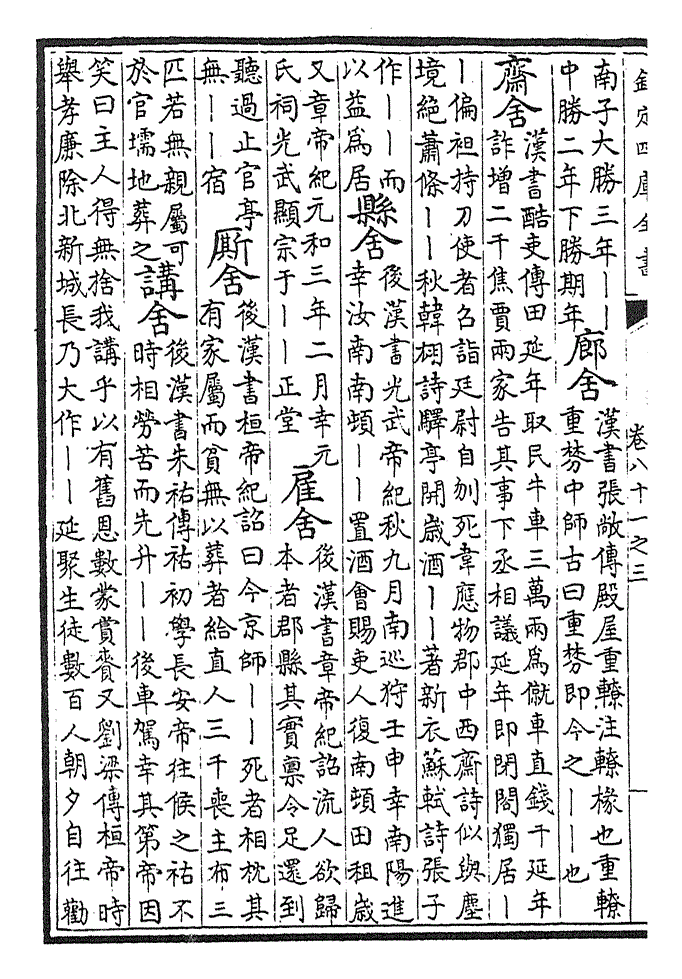 欽定四庫全書
卷八十一之三
南子大勝三年丨丨
中勝二年下勝期年
廊舍
漢書張敞傳殿屋重轑注轑椽也重轑
重棼中師古曰重棼即今之丨丨也
齋舍
漢書酷吏傳田延年取民牛車三萬兩為僦車直錢千延年
詐增二千焦賈兩家告其事下丞相議延年即閉閤獨居丨
丨偏袒持刀使者召詣廷尉自刎死韋應物郡中西齋詩似與塵
境絕蕭條丨丨秋韓栩詩驛亭開歲酒丨丨著新衣蘇軾詩張子
作丨丨而
以益為居
縣舍
後漢書光武帝紀秋九月南巡狩壬申幸南陽進
幸汝南南頓丨丨置酒會賜吏人復南頓田租歲
又章帝紀元和三年二月幸元
氏祠光武顯宗于丨丨正堂
雇舍
後漢書章帝紀詔流人欲歸
本者郡縣其實禀令足還到
聽過止官亭
無丨丨宿
厮舍
後漢書桓帝紀詔曰今京師丨丨死者相枕其
有家屬而貧無以葬者給直人三千喪主布三
匹若無親屬可
於官壖地葬之
講舍
後漢書朱祐傳祐初學長安帝往候之祐不
時相勞苦而先升丨丨後車駕幸其第帝因
笑曰主人得無捨我講乎以有舊恩數蒙賞賚又劉梁傳桓帝時
舉孝廉除北新城長乃大作丨丨延聚生徒數百人朝夕自往勸